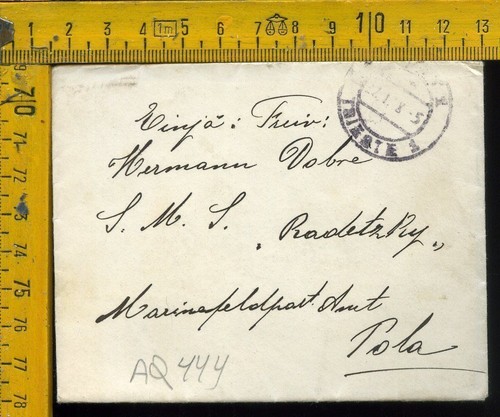 1 2 3 4 1m 5 6 7 8 9 10 11 12 13
70
71
72
73
74
75
76
77
78
TRIESTE 1
Einjä: Freiw:
Hermann Dobre
S. M. S.
"Radetzky"
Marinefeldpost Amt
Pola
AQ 444